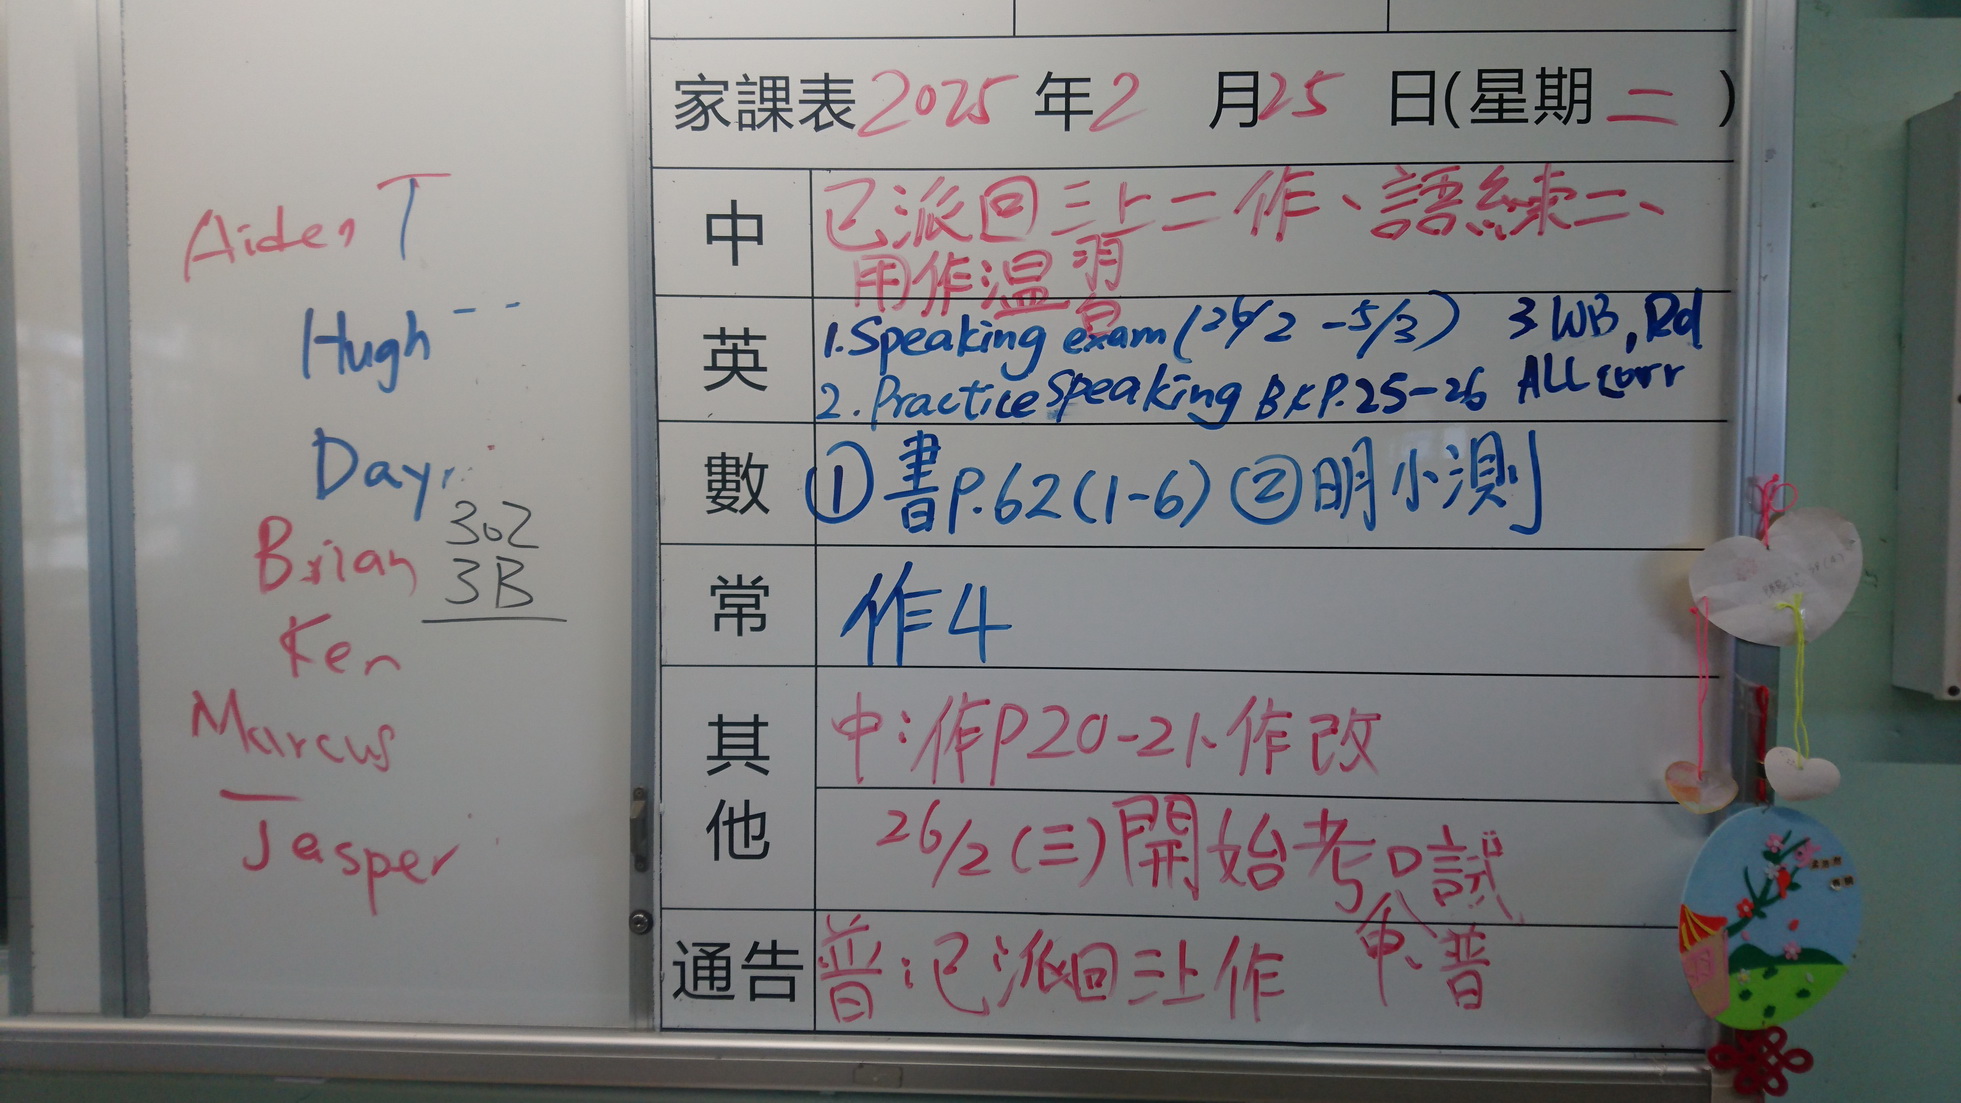 Aiden T
Hugh
Day
Brian
302
3B
Ken
Marcus
Jasper
家課表 2025 年 2 月 25 日(星期 二 )
中
已派回三上二作、語練二、
用作溫習
英
1. Speaking exam (26/2 - 5/3) 3 WB, Rd
2. Practice speaking BK P.25-26 ALL corr
數
① 書 P.62 (1-6) ② 明小測
常
作4
其他
中:作P20-21、作改
26/2 (三) 開始考口試
(中、普
通告
普:已派回三上作